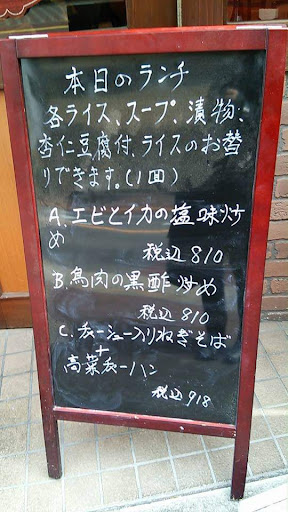 本日のランチ
各ライス、スープ、漬物、
杏仁豆腐付、ライスのお替
りできます。(1回)
A.エビとイカの塩味炒
め
税込 810
B.鳥肉の黒酢炒め
税込 810
C.チャーシュー入りねぎそば
+
高菜チャーハン
税込 918